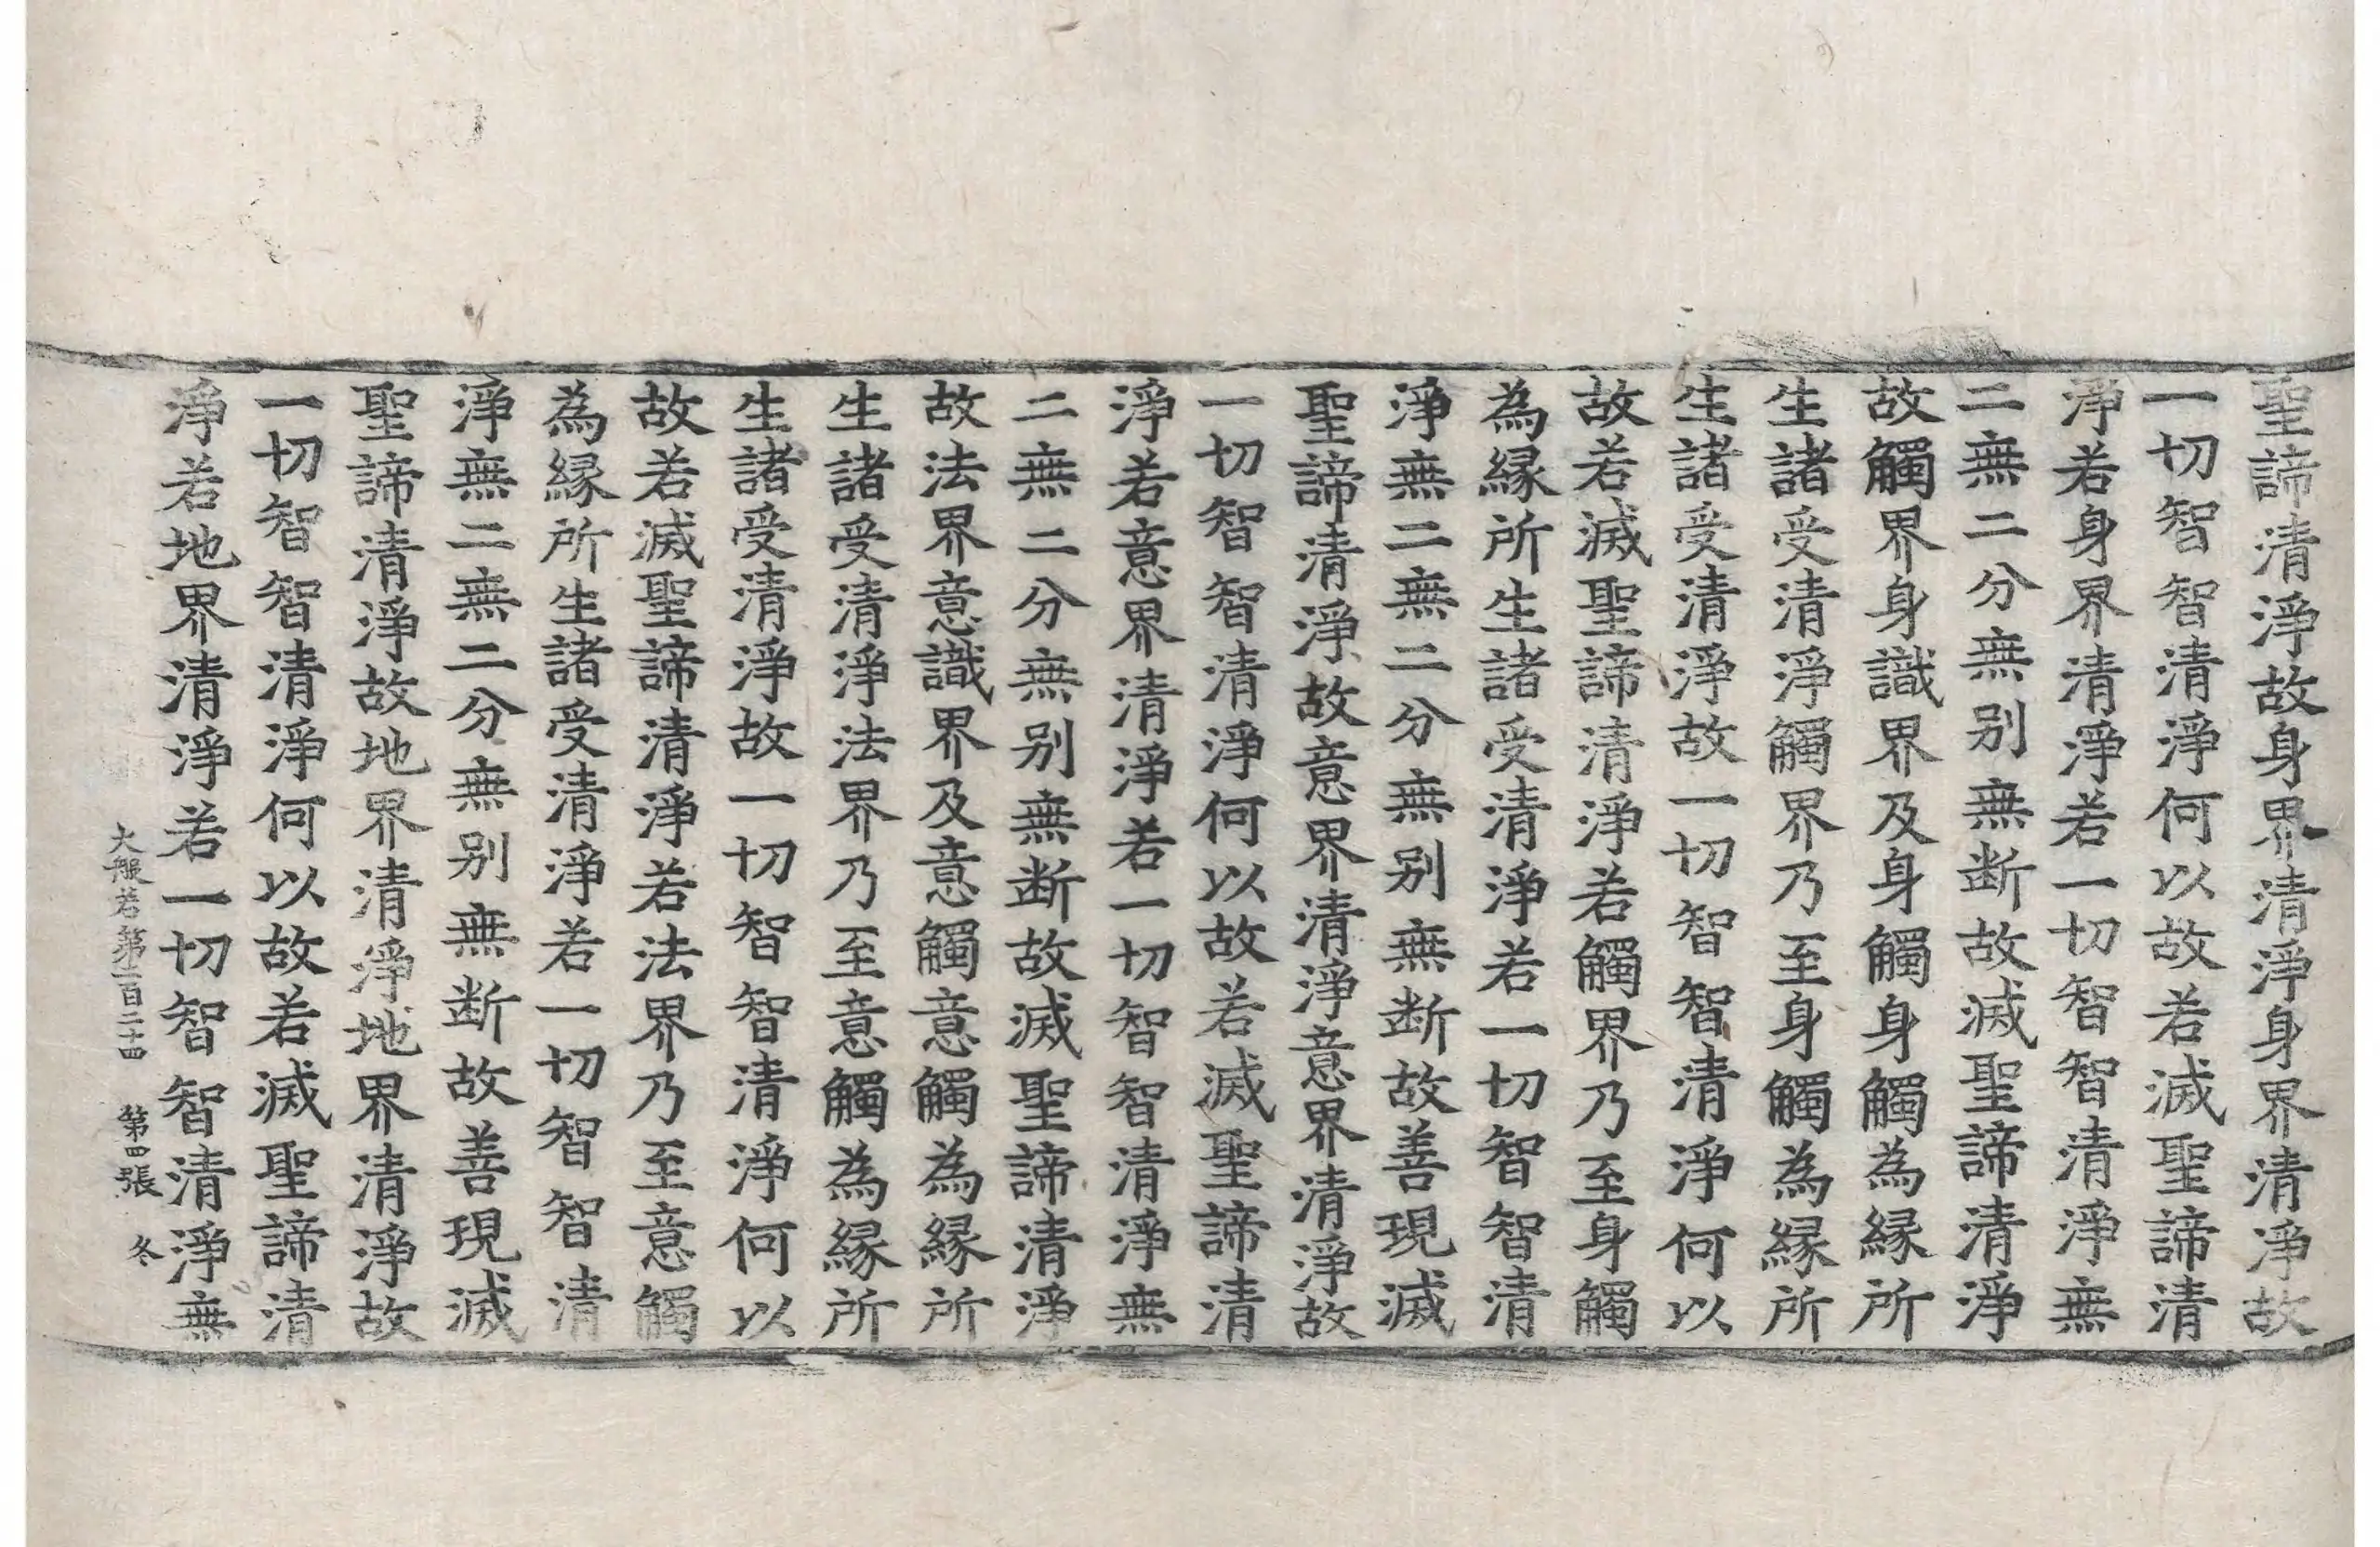 聖諦清淨故身界清淨身界清淨故
一切智智清淨何以故若滅聖諦清
淨若身界清淨若一切智智清淨無
二無二分無别無断故滅聖諦清淨
故觸界身識界及身觸身觸為縁所
生諸受清淨觸界乃至身觸為縁所
生諸受清淨故一切智智清淨何以
故若滅聖諦清淨若觸界乃至身觸
為縁所生諸受清淨若一切智智清
淨無二無二分無别無断故善現滅
聖諦清淨故意界清淨意界清淨故
一切智智清淨何以故若滅聖諦清
淨若意界清淨若一切智智清淨無
二無二分無别無断故滅聖諦清淨
故法界意識界及意觸意觸為縁所
生諸受清淨法界乃至意觸為縁所
生諸受清淨故一切智智清淨何以
故若滅聖諦清淨若法界乃至意觸
為縁所生諸受清淨若一切智智清
淨無二無二分無别無断故善現滅
聖諦清淨故地界清淨地界清淨故
一切智智清淨何以故若滅聖諦清
淨若地界清淨若一切智智清淨無
大般若第二百二十四 第四張 冬